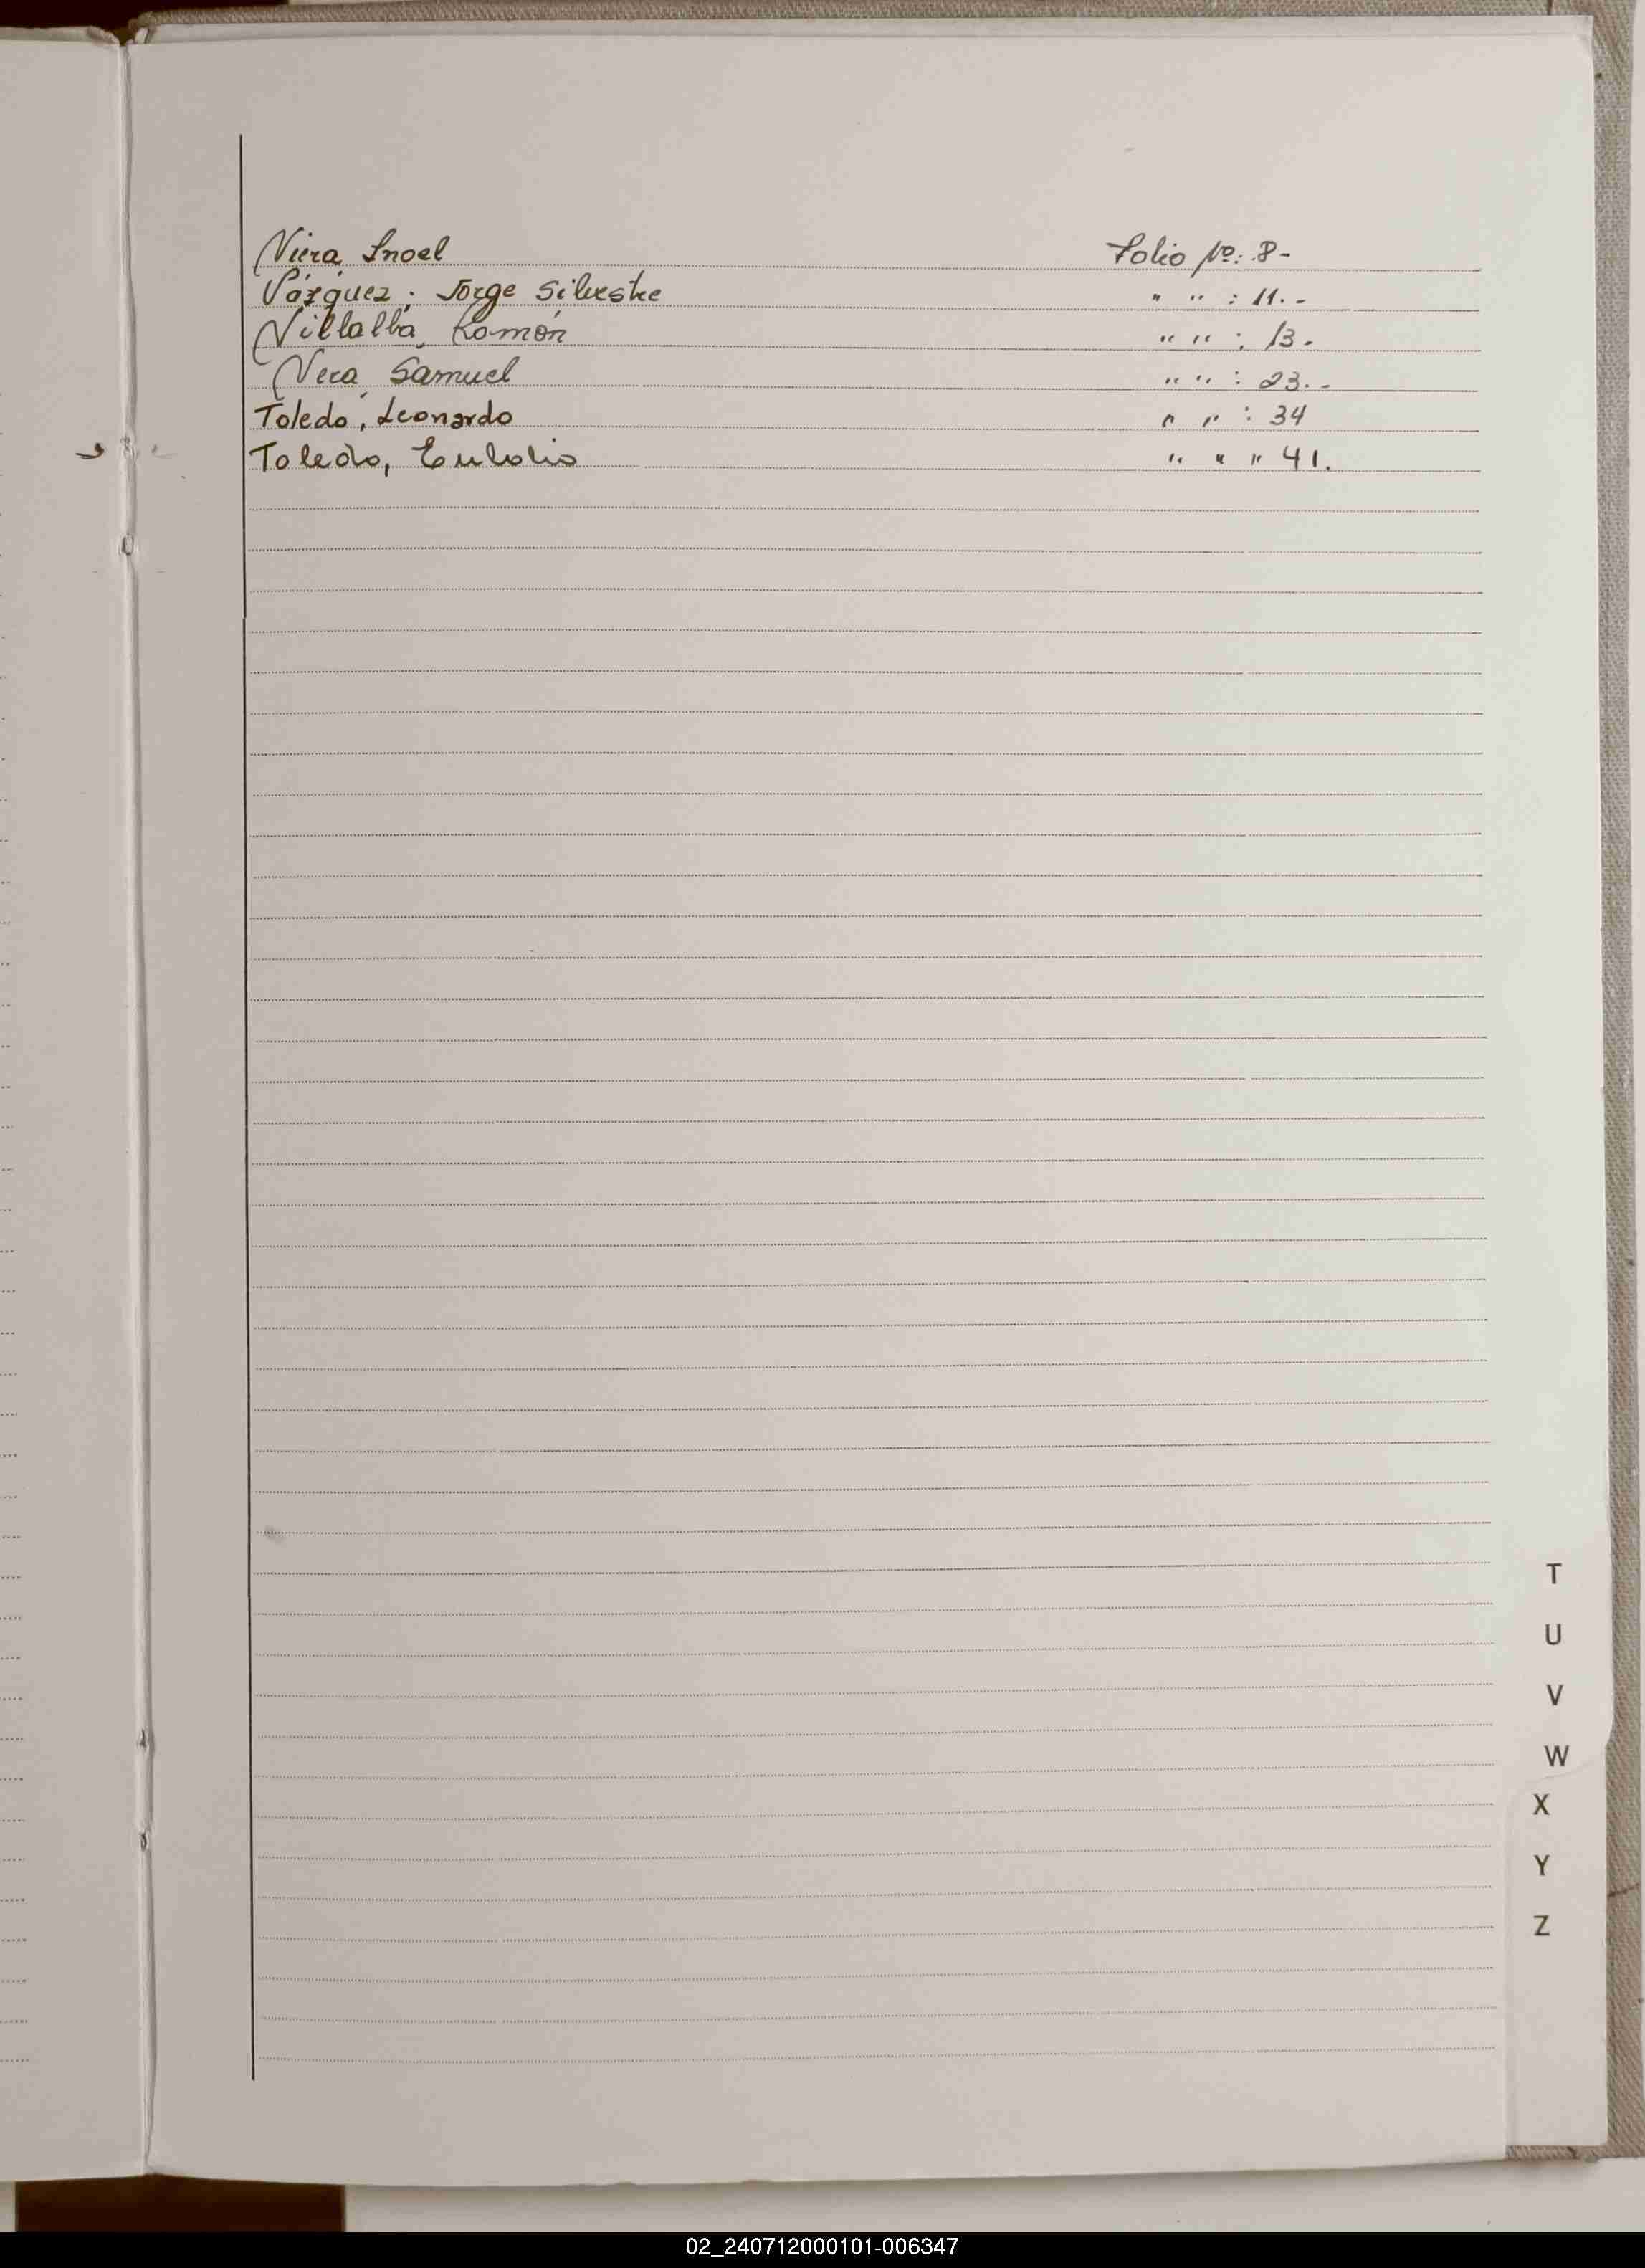 Viera Inoel Folio Nº: 8-
Vázquez, Jorge Silvestre " " : 11.-
Villalba, Ramón " " : 13.
Vera, Samuel " " : 23.-
Toledo, Leonardo " " : 34
Toledo, Eulolio " " " 41.
T
U
V
W
X
Y
Z
02_240712000101-006347